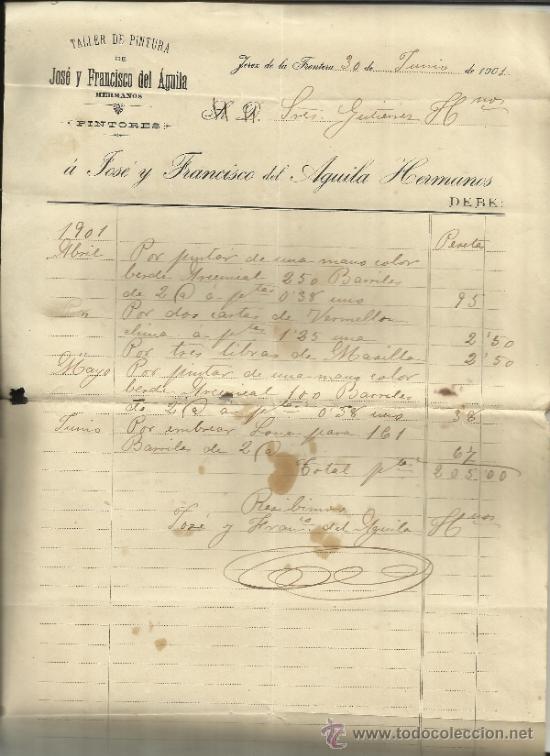 TALLER DE PINTURA
DE
José y Francisco del Águila
HERMANOS
PINTORES
Jerez de la Frontera 30 de Junio de 1901
Sres. Gutierrez Hnos
á José y Francisco del Aguila Hermanos
DEBE:
1901 Peseta
Abril Por pintar de una mano color
berde Arcenical 250 Barriles
de 2 @ á ptas 0'38 uno 95
Por dos cartas de Vermellon
china á ptas 1'25 una 2'50
Por tres libras de Masilla 2'50
Mayo Por pintar de una mano color
berde Arcenical 100 Barriles
de 2 @ á ptas 0'38 uno 38
Junio Por embrear Lona para 161
Barriles de 2 @ 67
Total ptas 205'00
Recibimos
José y Franco del Aguila Hnos
todocoleccion.net